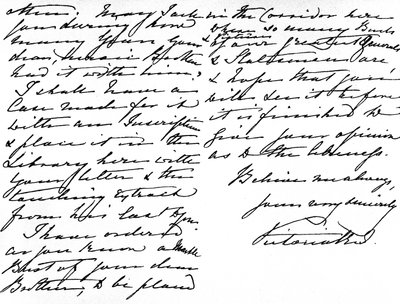 other. May I ask
you during how
many years your
dear, heroic Brother
had it with him?
I shall have a
Case made for it
with an Inscription
& place it in the
Library here with
your letter & the
touching Extract
from his last to you.
I have ordered
as you know a Marble
Bust of your dear
Brother, to be placed
in the Corridor here
where so many Busts
& Pictures
of our greatest Generals
& Statesmen are
& hope that you
will see it before
it is finished to
give your opinion
as to the likeness.
Believe me always,
yours very sincerely
Victoria R.I.